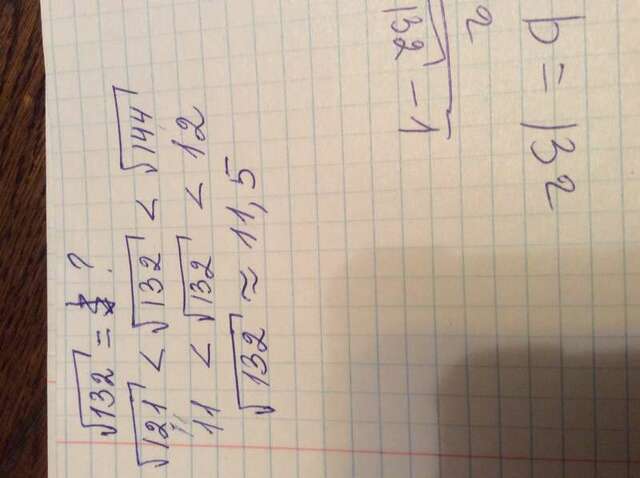 √132 = ?
√121 < √132 < √144
11 < √132 < 12
√132 ≈ 11,5
D = 132
2
√132 - 1